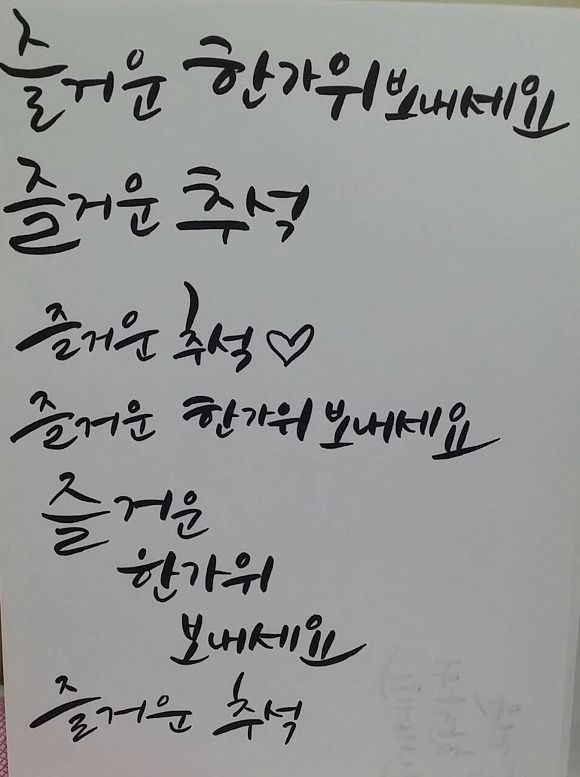 즐거운 한가위 보내세요
즐거운 추석
즐거운 추석♡
즐거운 한가위 보내세요
즐거운
한가위
보내세요
즐거운 추석